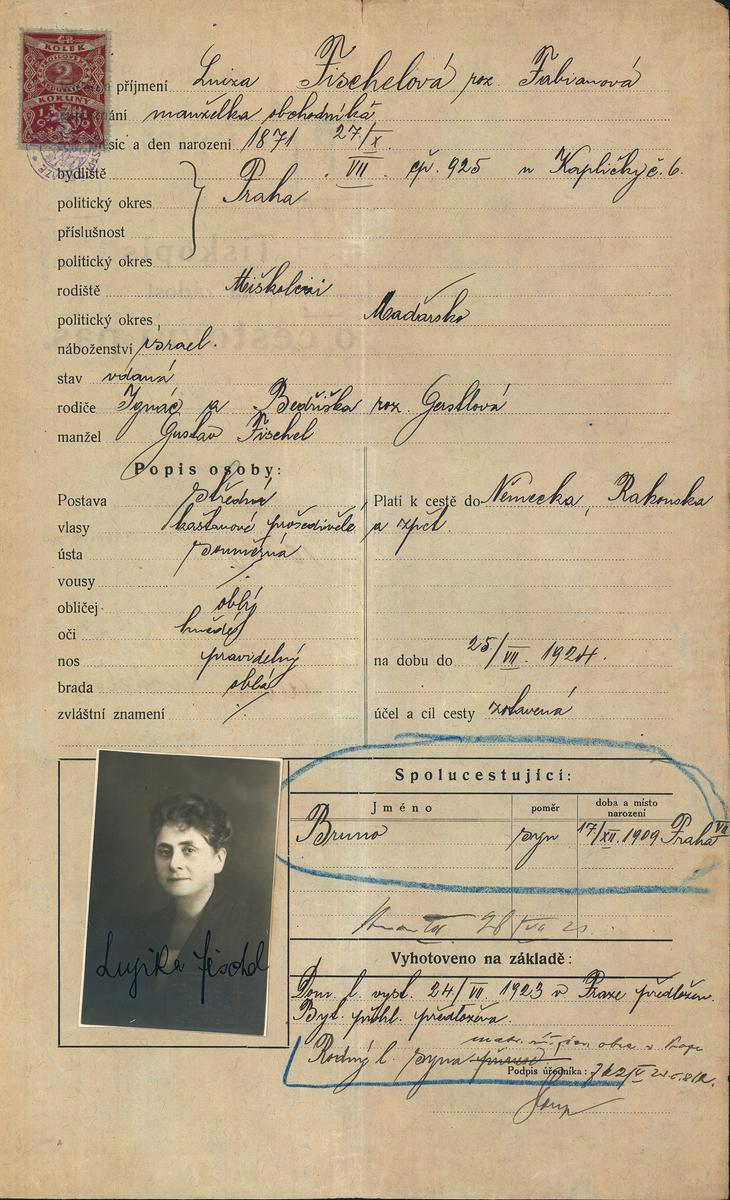 ČR
KOLEK
2
KORUNY
1919
příjmení Luiza Fischelová roz. Fabianová
manželka obchodníka
a den narození 1871 27/X.
bydliště VII čp. 925 u Kapličky č. 6.
politický okres Praha
příslušnost
politický okres
rodiště Miškolci
politický okres Maďarsko
náboženství israel.
stav vdaná
rodiče Ignác a Bedřiška roz. Gerstlová
manžel Gustav Fischel
Popis osoby:
Postava středná
vlasy kaštanové prošedivělé
ústa souměrná
vousy /
obličej oblý
oči hnědé
nos pravidelný
brada oblá
zvláštní znamení /
Platí k cestě do Německa, Rakouska
a zpět.
na dobu do 25/VII. 1924.
účel a cíl cesty zotavená
Spolucestující:
Jméno poměr doba a místo narození
Bruno syn 17/XII. 1909 Praha VII
28/VII 23
Vyhotoveno na základě:
Dom. l. vyst. 24/VII. 1923 v Praze předložen.
Byt. přihl. předložena.
Rodný l. syna
Podpis úředníka:
Lujika Fischel